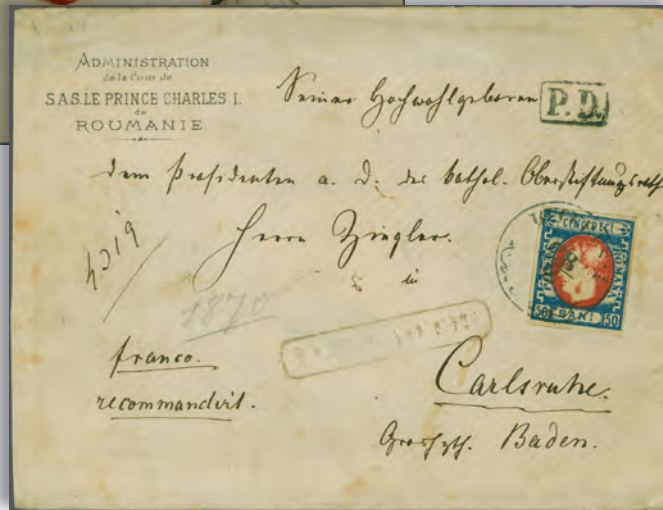 ADMINISTRATION
de la Cour de
S.A.S. LE PRINCE CHARLES I.
de
ROUMANIE
Seiner Hochwohlgeboren
P.D.
dem Präsidenten a. D. des kathol. Oberstiftungsrath
Herrn Ziegler.
in
1870
50 BANI 50
franco.
recommandirt.
Carlsruhe.
Baden.